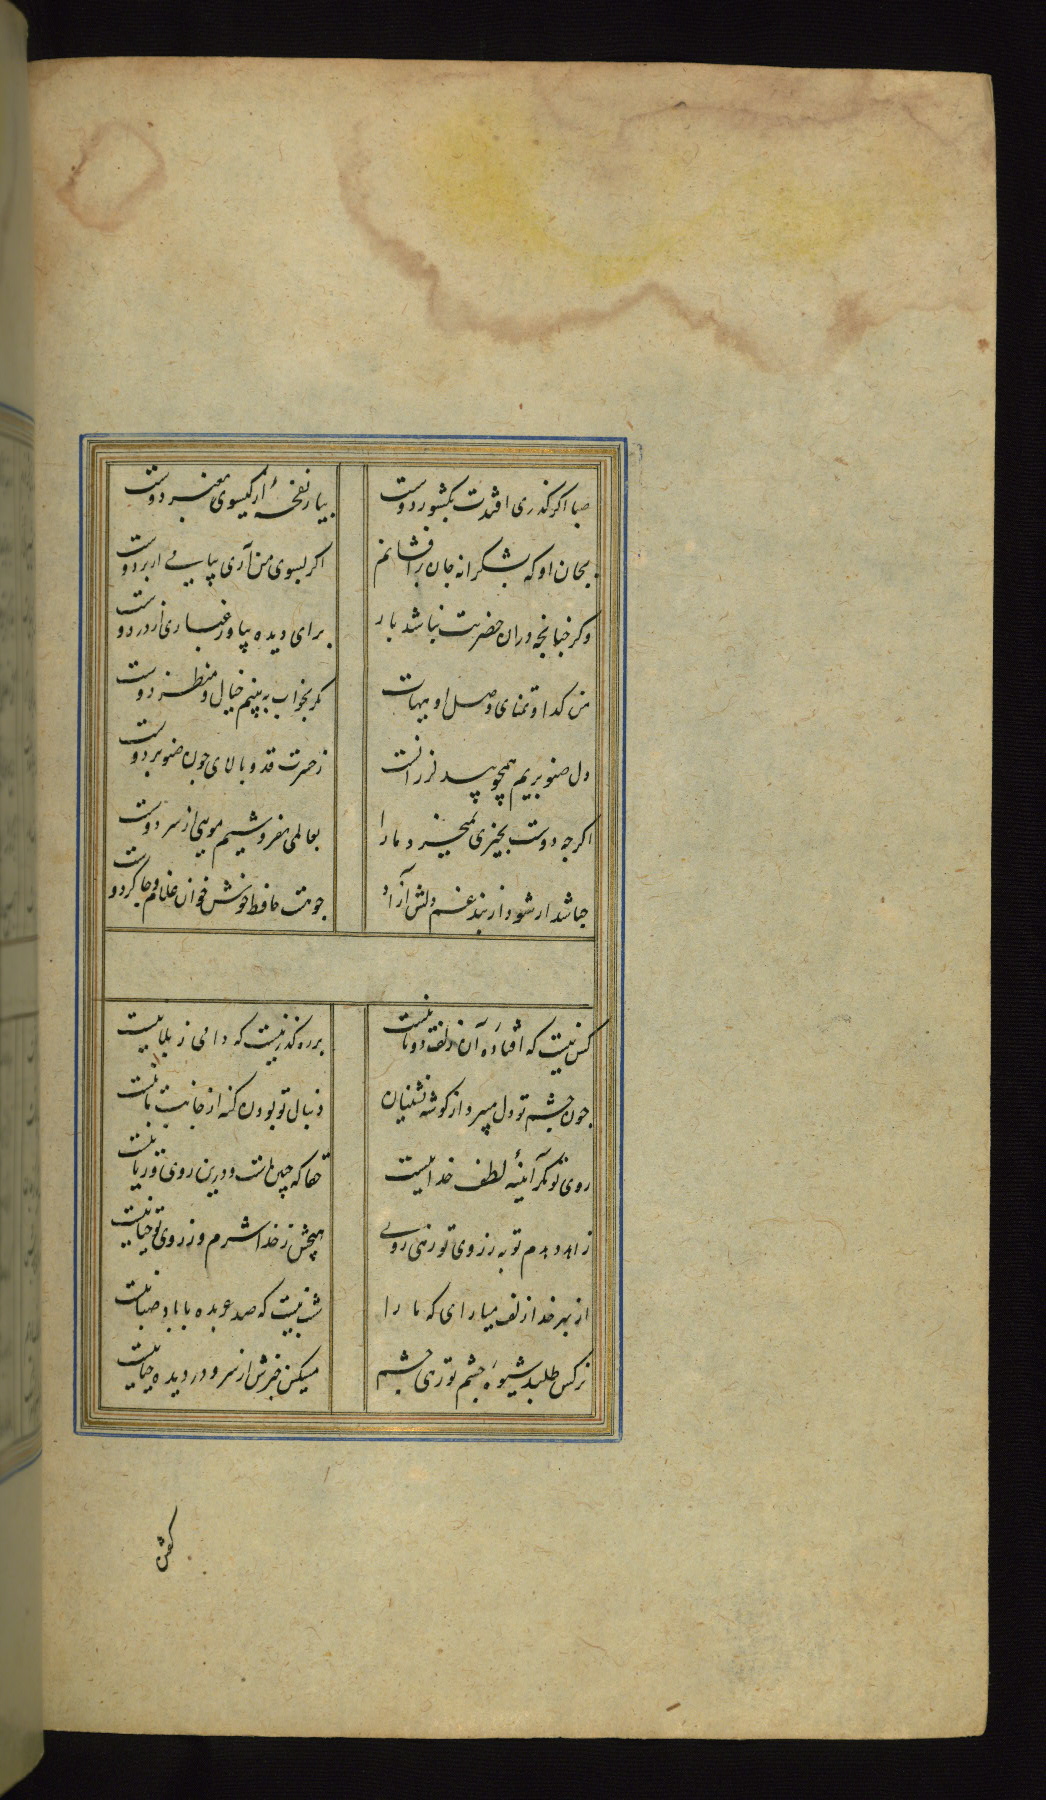 صبا اگر گذری افتدت بکشور دوست بیار نفحهٔ از گیسوی معنبر دوست
بجان او که بشکرانه جان برافشانم اگر بسوی من آری پیامی از بر دوست
وگر چنانچه دران حضرتت نباشد بار برای دیده بیاور غباری از در دوست
من گدا و تمنای وصل او هیهات مگر بخواب به بینم خیال و منظر دوست
دل صنوبریم همچو بید لرزانست ز حسرت قد و بالای چون صنوبر دوست
اگرچه دوست بچیزی نمیخرد ما را بعالمی نفروشیم مویی از سر دوست
چه باشد ار شود از بند غم دلش آزاد چو هست حافظ خوشخوان غلام و چاکر دوست
کس نیست که افتاده آن زلف دوتا نیست بر رهگذر نیست که دامی ز بلا نیست
چون چشم تو دل میبرد از گوشه نشینان دنبال تو بودن گنه از جانب ما نیست
روی تو مگر آینهٔ لطف خداییست حقا که چنین است و درین روی و ریا نیست
زاهد دهدم توبه ز روی تو زهی روی هیچش ز خدا شرم و ز روی تو حیا نیست
از بهر خدا زلف میارای که ما را شب نیست که صد عربده با باد صبا نیست
نرگس طلبد شیوه چشم تو زهی چشم مسکین خبرش از سر و در دیده حیا نیست
گفتن